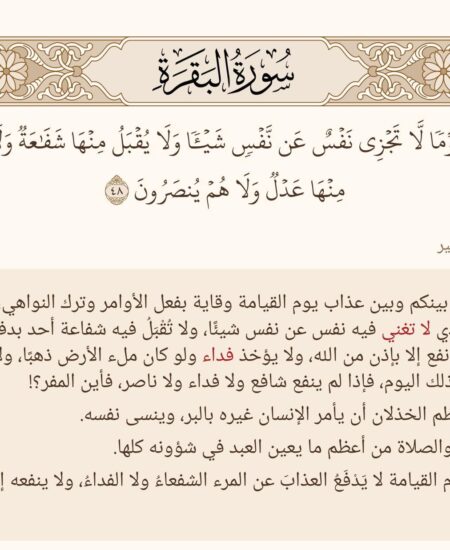 سُورَةُ البَقَرَةِ
وۡمٗا لَّا تَجۡزِي نَفۡسٌ عَن نَّفۡسٖ شَيۡـٔٗا وَلَا يُقۡبَلُ مِنۡهَا شَفَٰعَةٞ وَلَا
مِنۡهَا عَدۡلٞ وَلَا هُمۡ يُنصَرُونَ ٤٨
ير
بينكم وبين عذاب يوم القيامة وقاية بفعل الأوامر وترك النواهي،
ي لا تغني فيه نفس عن نفس شيئًا، ولا تُقْبَلُ فيه شفاعة أحد بدف
نفع إلا بإذن من الله، ولا يؤخذ فداء ولو كان ملء الأرض ذهبًا، ولا
ذلك اليوم، فإذا لم ينفع شافع ولا فداء ولا ناصر، فأين المفر؟!
ظم الخذلان أن يأمر الإنسان غيره بالبر، وينسى نفسه.
والصلاة من أعظم ما يعين العبد في شؤونه كلها.
م القيامة لا يَدْفَعُ العذابَ عن المرء الشفعاءُ ولا الفداءُ، ولا ينفعه إ